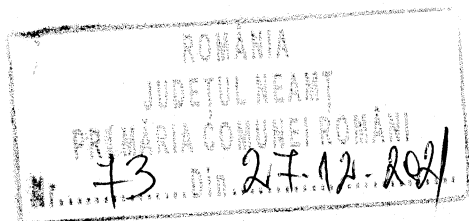 ROMÂNIA
JUDEŢUL NEAMŢ
PRIMĂRIA COMUNEI ROMÂNI
Nr. 73 Din. 27-12-2021